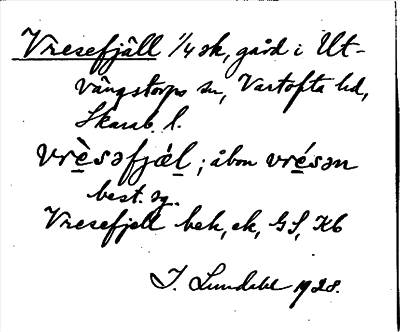 Vresefjäll 1/4 sk, gård i Ut-
vängstorps sn, Vartofta hd,
Skarab. l.
vrèsəfjæ̀l; åbon vrésən
best. sg.
Vresefjell bek, ek, GS, Kb
I. Lundahl 1928.